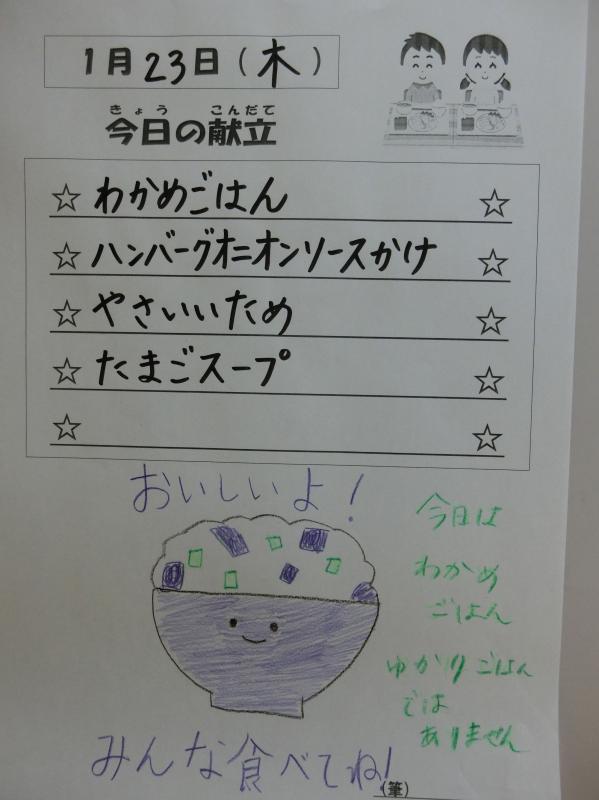 1月23日(木)
きょう こんだて
今日の献立
☆わかめごはん☆
☆ハンバーグオニオンソースかけ☆
☆やさいいため☆
☆たまごスープ☆
☆☆
おいしいよ!
今日は
わかめ
ごはん
ゆかりごはん
では
ありません
みんな食べてね!
(筆)